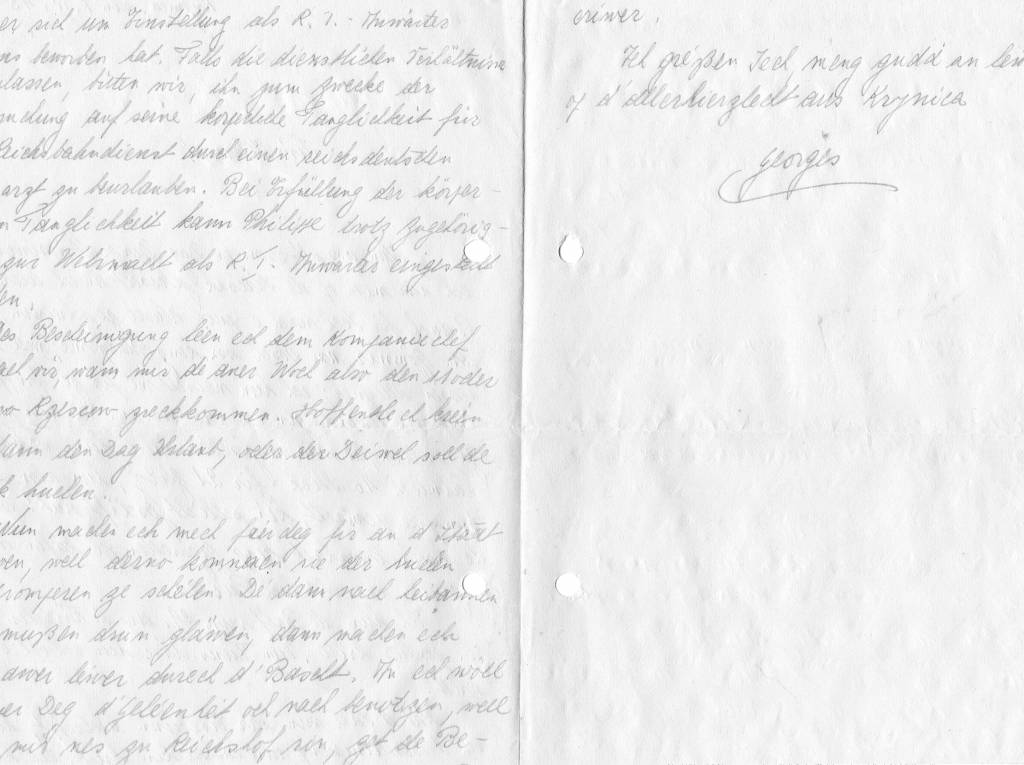 er sich um Einstellung als R. I. - Anwärter
uns beworben hat. Falls die dienstlichen Verhältnisse
ulassen, bitten wir, ihn zum Zwecke der
suchung auf seine körperliche Tauglichkeit für
Reichsbahndienst durch einen reichsdeutschen
arzt zu beurlauben. Bei Erfüllung der körper-
n Tauglichkeit kann Philippe trotz Zugehörig-
zur Wehrmacht als R. I. Anwärter eingestellt
en.
es Bescheinigung léen ech dem Kompaniechef
vir, wann mir de aner Woch also den oder
Rzeszow zreckkommen. Hoffentlech kréien
dann den Dag Urlaub, oder der Deiwel soll de
k huelen.
Nun machen ech mech fäerdeg fir an d'Staat
well derno kommen nie der
gromperen ze schielen. De dann nach
mußen drun gläwen, dann machen ech
awer liwer duerch d'Bascht. An ech wëll
er Deg d'Geleenhét och nach benotzen, well
mir nes zu Reichshof sin, get de Be-
eriwer.
Ech gréißen Iech meng gudd an léiw
op d'allerhierzlecht aus Krynica
Georges